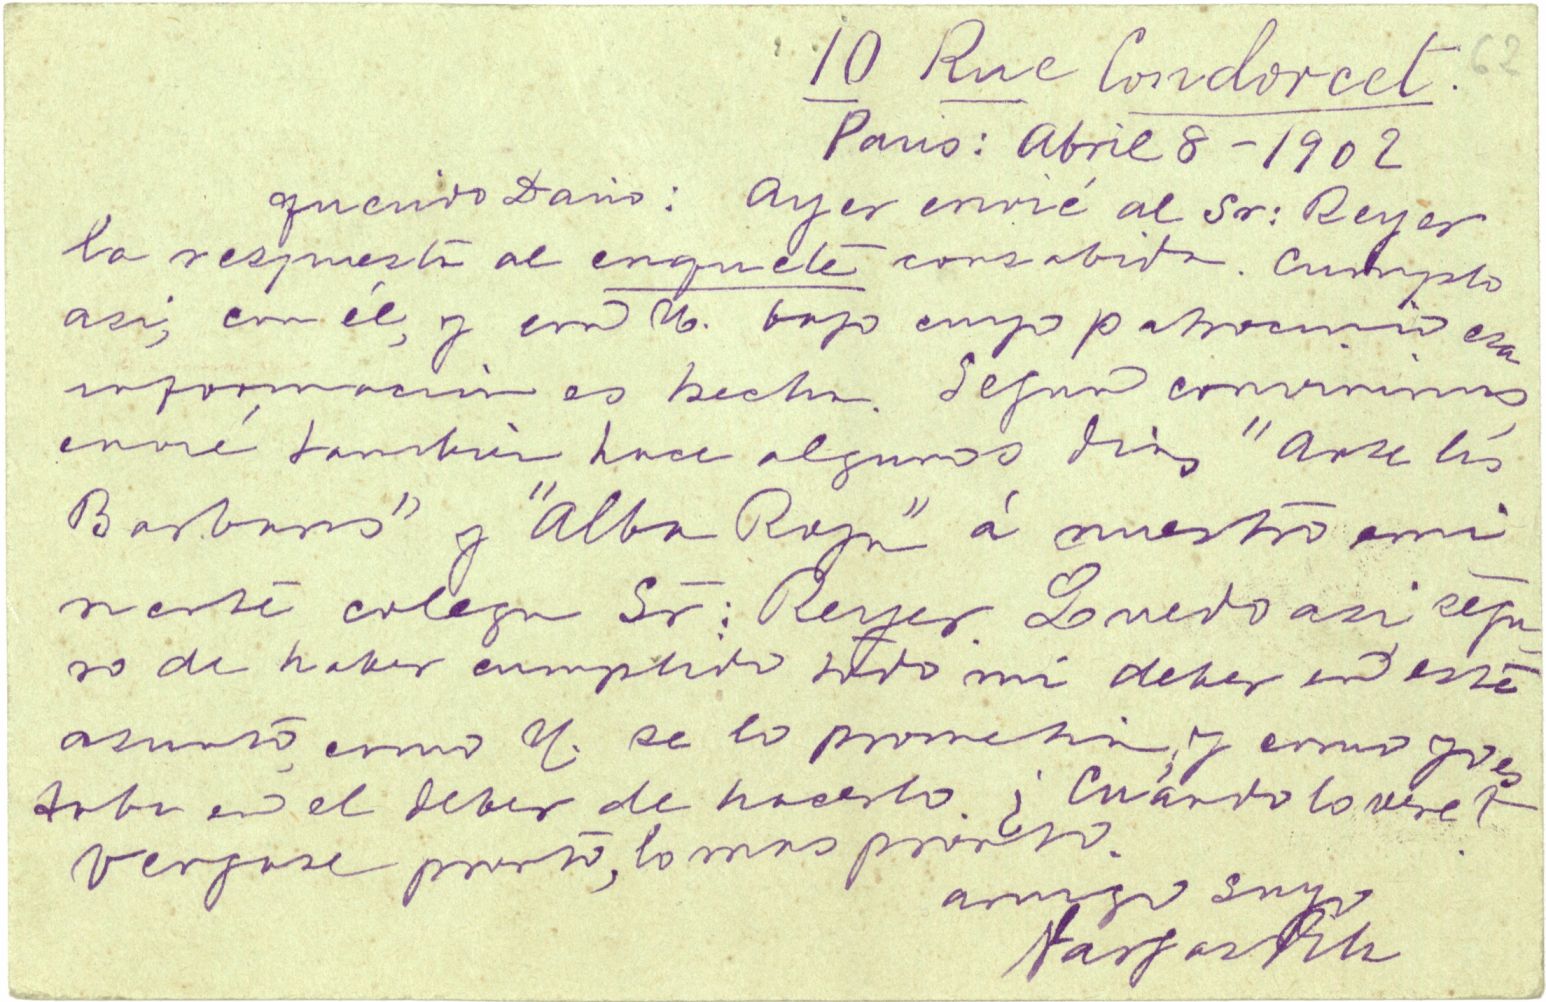 62
10 Rue Condorcet.
Paris: Abril 8 - 1902
querido Dario: Ayer envié al Sr: Reyer
la respuesta al enquete consabida. Cumplo
asi, con él, y con U. bajo cuyo patrocinio esa
informacion es hecha. Segun convinimos
envié tambien hace algunos dias "Ante los
Barbaros" y "Alba Roja" á nuestro emi
nente colega Sr: Reyer. Quedo asi segu
ro de haber cumplido todo mi deber en este
asunto, como U. se lo prometia, y como yo es
taba en el deber de hacerlo. ¿Cuándo lo vere?
Vengase pronto, lo mas pronto.
amigo suyo
Vargas Vila